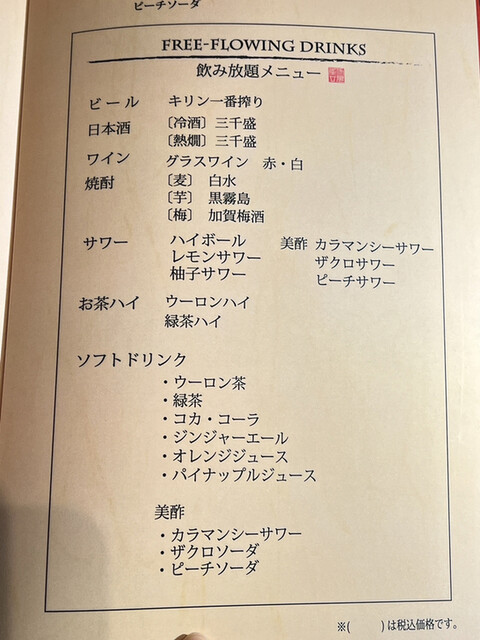 ピーチソーダ
FREE-FLOWING DRINKS
飲み放題メニュー
ビール キリン一番搾り
日本酒 〔冷酒〕三千盛
〔熱燗〕三千盛
ワイン グラスワイン 赤・白
焼酎 〔麦〕 白水
〔芋〕 黒霧島
〔梅〕 加賀梅酒
サワー ハイボール 美酢 カラマンシーサワー
レモンサワー ザクロサワー
柚子サワー ピーチサワー
お茶ハイ ウーロンハイ
緑茶ハイ
ソフトドリンク
・ウーロン茶
・緑茶
・コカ・コーラ
・ジンジャーエール
・オレンジジュース
・パイナップルジュース
美酢
・カラマンシーサワー
・ザクロソーダ
・ピーチソーダ
※( )は税込価格です。